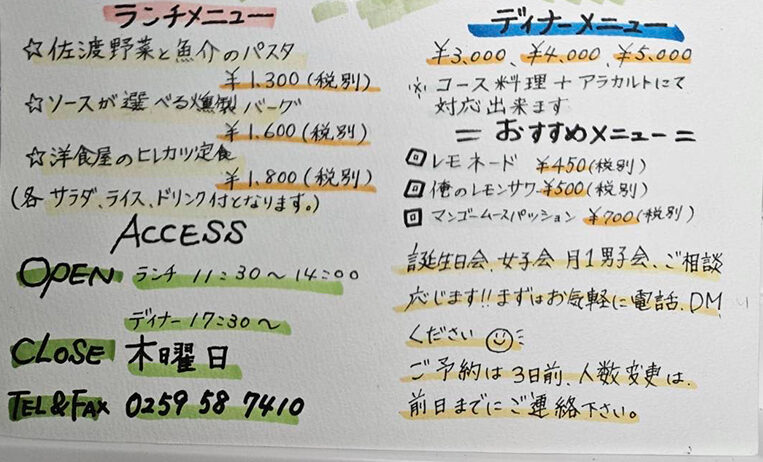 ランチメニュー
☆佐渡野菜と魚介のパスタ
¥1.300(税別)
☆ソースが選べる燻製バーグ
¥1.600(税別)
☆洋食屋のヒレカツ定食
¥1.800(税別)
(各サラダ、ライス、ドリンク付となります。)
ACCESS
OPEN ランチ 11:30〜14:00
ディナー 17:30〜
CLOSE 木曜日
TEL&FAX 0259 58 7410
ディナーメニュー
¥3.000、¥4.000、¥5.000
※コース料理+アラカルトにて
対応出来ます
=おすすめメニュー=
回レモネード ¥450(税別)
回俺のレモンサワー¥500(税別)
回マンゴームースパッション ¥700(税別)
誕生日会、女子会、月1男子会、ご相談
応じます!!まずはお気軽に電話、DM
ください
ご予約は3日前、人数変更は、
前日までにご連絡下さい。